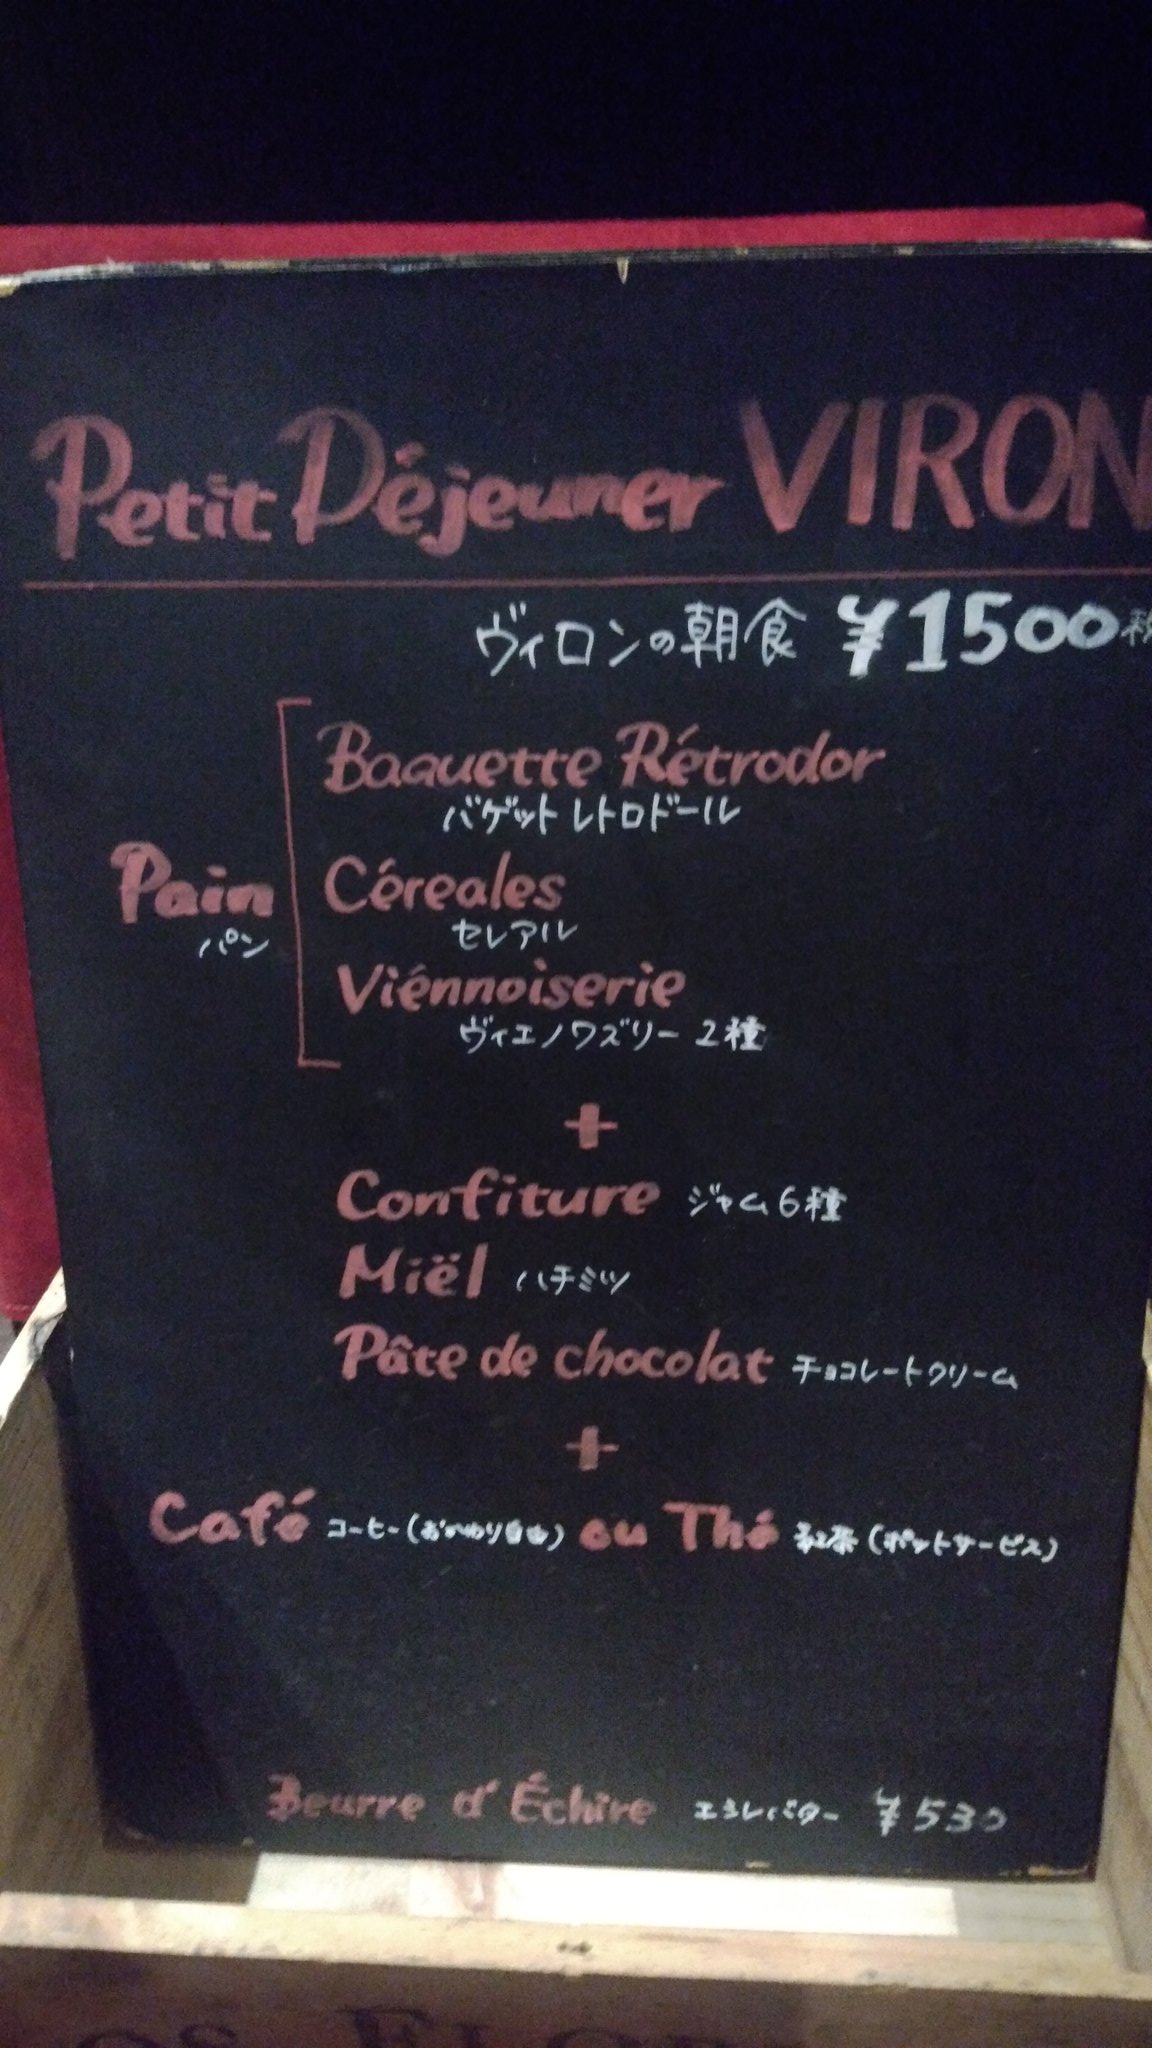 Petit Déjeuner VIRON
ヴィロンの朝食 ¥1500
Baguette Rétrodor
バゲット レトロドール
Pain
パン
Céreales
セレアル
Viénnoiserie
ヴィエノワズリー 2種
+
Confiture ジャム6種
Miël ハチミツ
Pâte de chocolat チョコレートクリーム
+
Café コーヒー(おかわり自由) ou Thé 紅茶(ポットサービス)
Beurre d'Échiré エシレバター ¥530